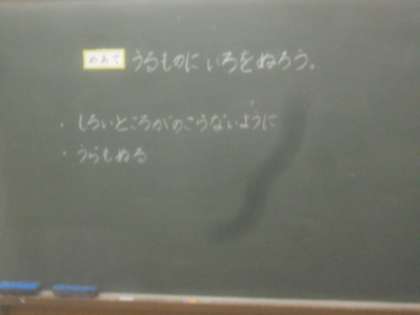 めあて うるものに いろをぬろう。
・しろいところがのこらないように
・うらもぬる